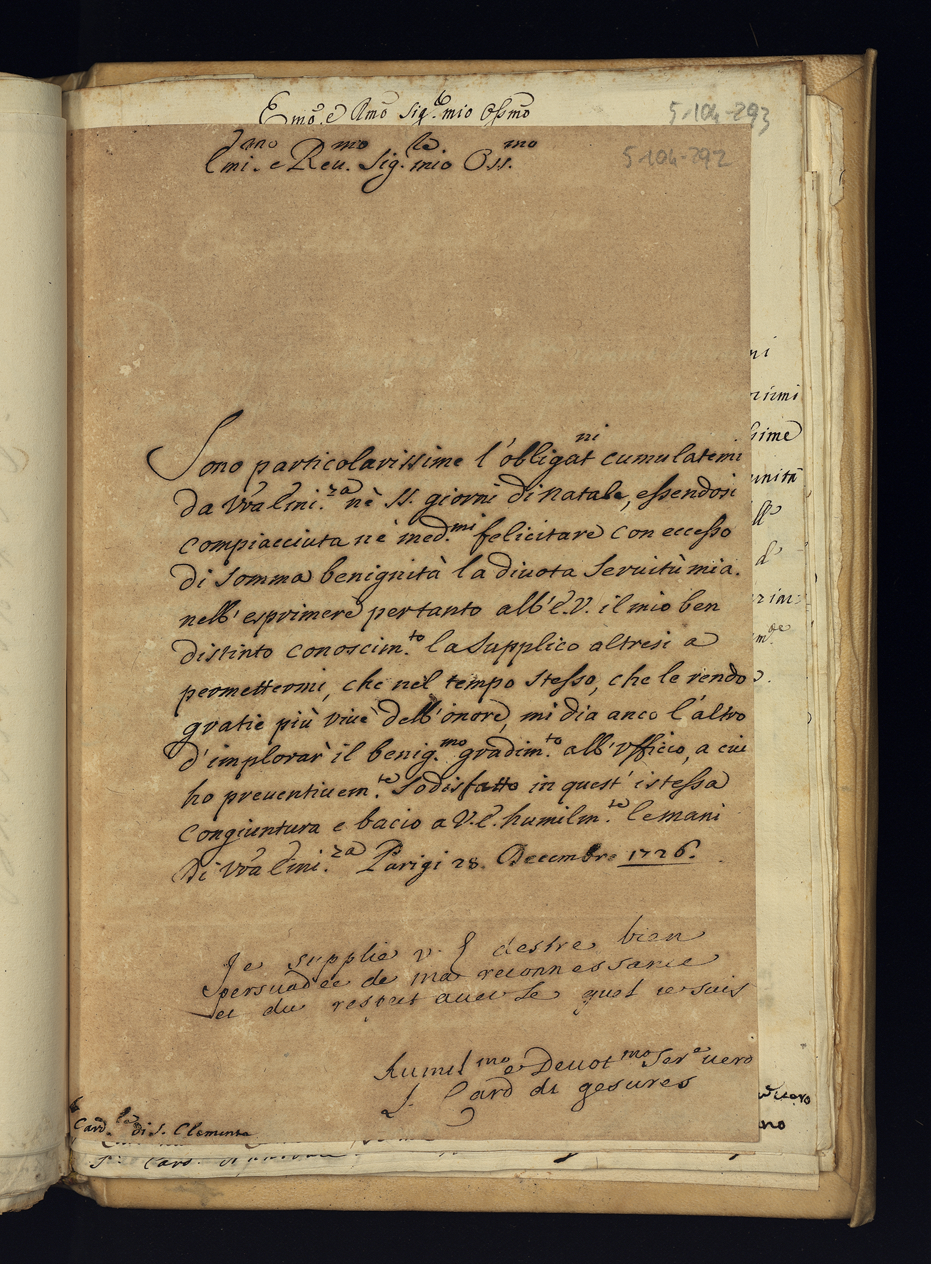 Emo. e Rmo Sig.re mio Ossmo
5-104-293
Emi.mo e Reu.mo Sig.re mio Oss.mo
5-104-292
Sono particolarissime l'obligat.ni cumulatemi
da Vra Emi.za nè SS. giorni di Natale, essendosi
compiacciuta nè med.mi felicitare con eccesso
di somma benignità la divota Servitù mia.
nell'esprimere pertanto all'E.V. il mio ben
distinto conoscim.to la supplico altresi a
permettermi, che nel tempo stesso, che le rendo
gratie più vive dell'onore, mi dia anco l'altro
d'implorar il benig.mo gradim.to all'Vfficio, a cui
ho preventivem.te sodisfatto in quest'istessa
congiuntura e bacio a V.E. humilm.te le mani
Di Vra Emi.za Parigi 28. Decembre 1726.
Je supplie v. E destre bien
persuadée de ma reconnessance
et du respect avec le quel ie suis
Humil.mo e Devot.mo Ser.e vero
J. Card di gesvres
Card.le di S. Clemente